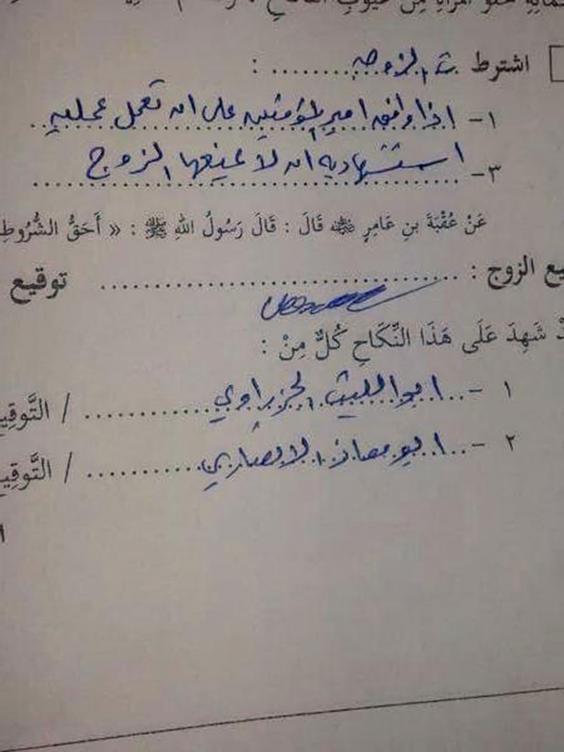 اشترطت الزوجه :
١- اذا وافق امير المؤمنين على ان تعمل عمليه
٣- استشهاديه ان لا يمنعها الزوج
عَنْ عُقْبَةَ بنِ عَامِرٍ ﷺ قَالَ : قَالَ رَسُولُ اللهِ ﷺ : « أَحَقُّ الشُّرُوطِ
الزوج : توقيع
شَهِدَ عَلَى هَذَا النِّكَاحِ كُلٌّ مِنْ :
١ - ابو الليث الجزراوي / التَّوقِيع
٢ - ابو معاذ الانصاري / التَّوقِيع